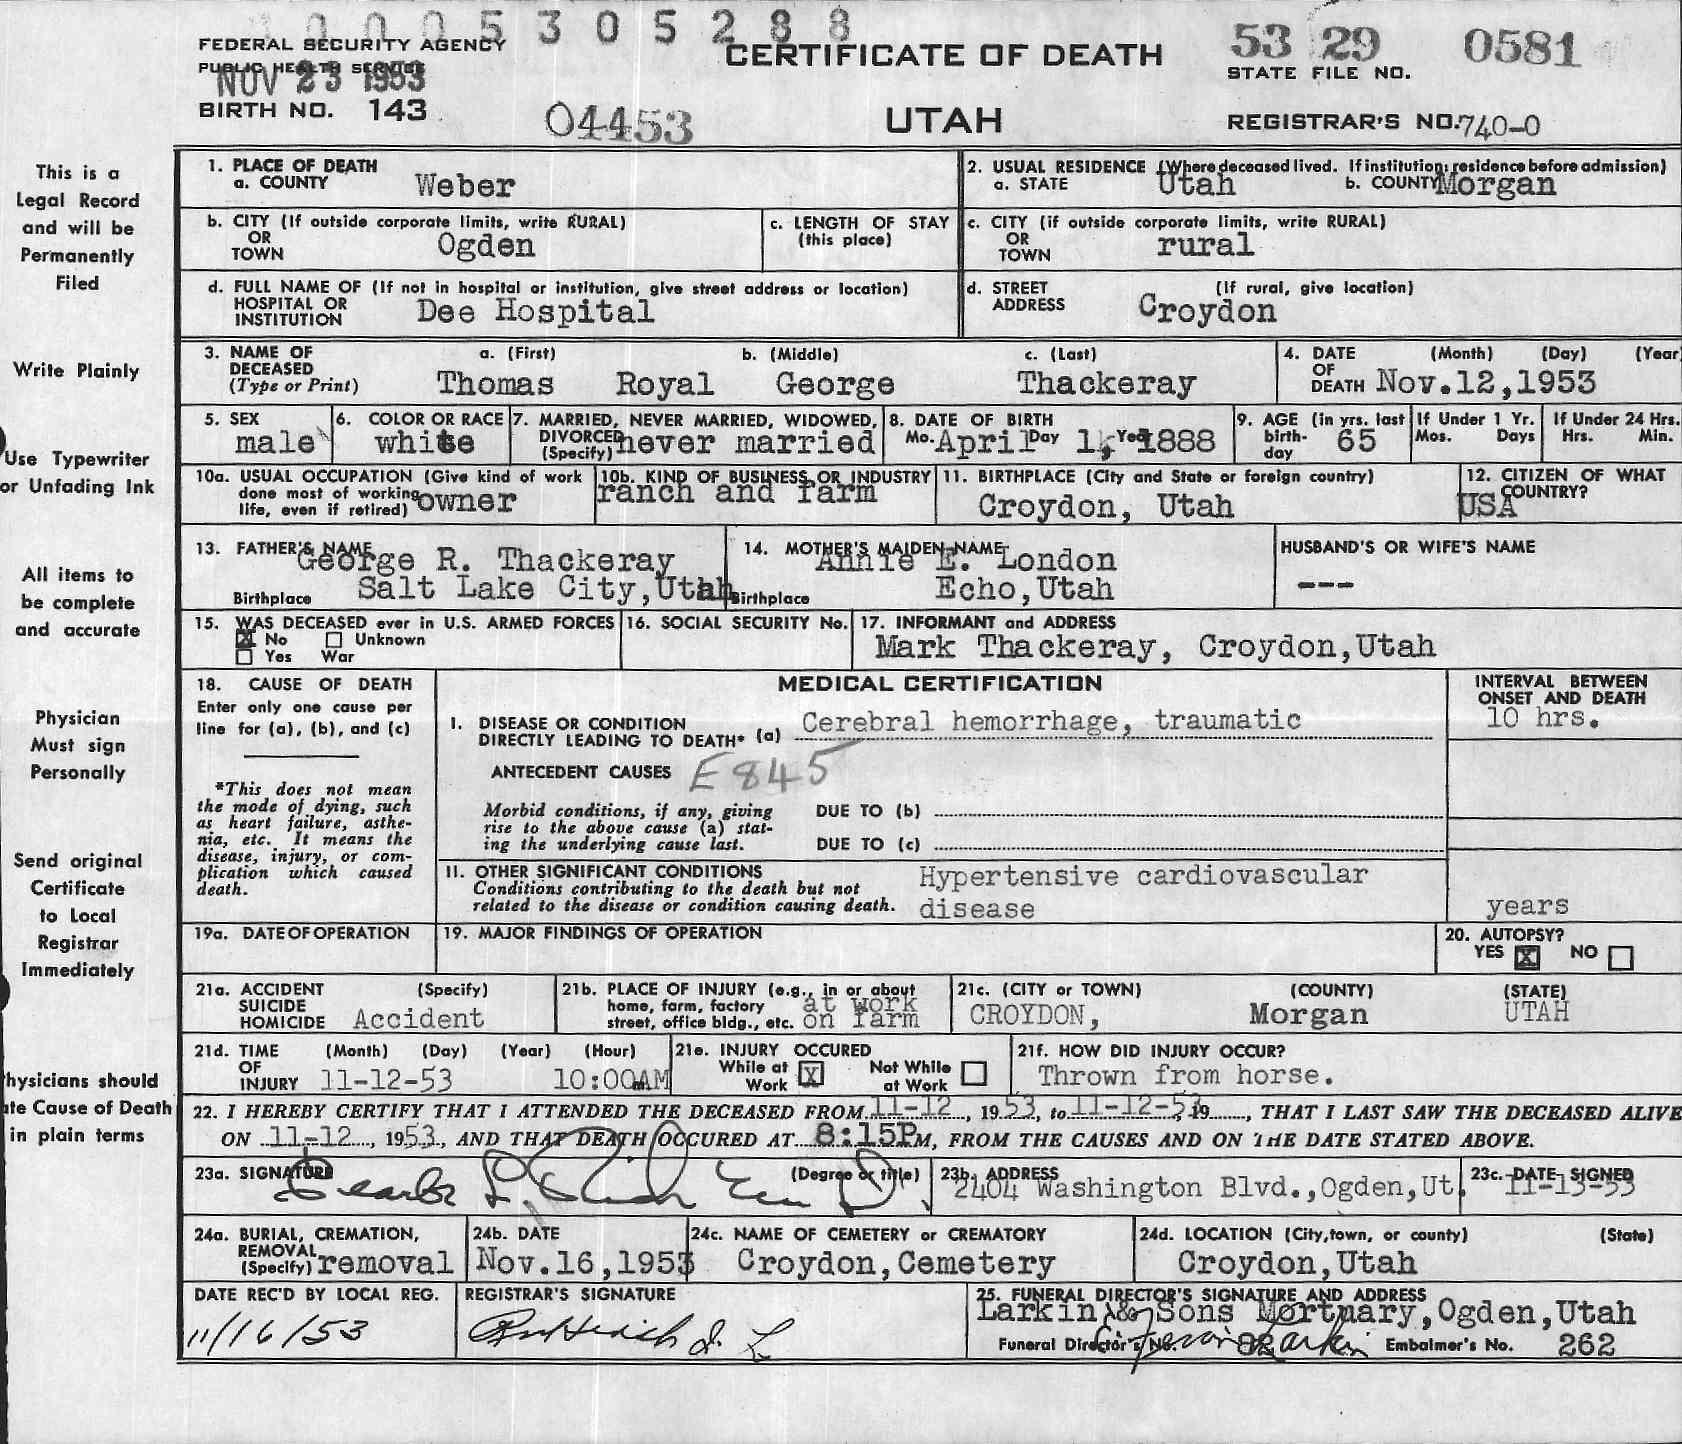 0005305288
FEDERAL SECURITY AGENCY
PUBLIC HEALTH SERVICE
NOV 23 1953
BIRTH NO. 143
04453
CERTIFICATE OF DEATH
UTAH
53 29 0581
STATE FILE NO.
REGISTRAR'S NO. 740-0
This is a
Legal Record
and will be
Permanently
Filed
Write Plainly
Use Typewriter
or Unfading Ink
All items to
be complete
and accurate
Physician
Must sign
Personally
Send original
Certificate
to Local
Registrar
Immediately
hysicians should
ate Cause of Death
in plain terms
1. PLACE OF DEATH
a. COUNTY Weber
2. USUAL RESIDENCE (Where deceased lived. If institution: residence before admission)
a. STATE Utah b. COUNTY Morgan
b. CITY (If outside corporate limits, write RURAL)
OR
TOWN Ogden
c. LENGTH OF STAY
(this place)
c. CITY (if outside corporate limits, write RURAL)
OR
TOWN rural
d. FULL NAME OF (If not in hospital or institution, give street address or location)
HOSPITAL OR
INSTITUTION Dee Hospital
d. STREET (If rural, give location)
ADDRESS Croydon
3. NAME OF a. (First) b. (Middle) c. (Last)
DECEASED
(Type or Print) Thomas Royal George Thackeray
4. DATE (Month) (Day) (Year
OF
DEATH Nov.12,1953
5. SEX
male
6. COLOR OR RACE
white
7. MARRIED, NEVER MARRIED, WIDOWED,
DIVORCED
(Specify) never married
8. DATE OF BIRTH
Mo. April Day 1, Year 1888
9. AGE (in yrs. last
birth-
day 65
If Under 1 Yr.
Mos. Days
If Under 24 Hrs.
Hrs. Min.
10a. USUAL OCCUPATION (Give kind of work
done most of working
life, even if retired) owner
10b. KIND OF BUSINESS OR INDUSTRY
ranch and farm
11. BIRTHPLACE (City and State or foreign country)
Croydon, Utah
12. CITIZEN OF WHAT
COUNTRY?
USA
13. FATHER'S NAME
George R. Thackeray
Birthplace Salt Lake City,Utah
14. MOTHER'S MAIDEN NAME
Annie E. London
Birthplace Echo,Utah
HUSBAND'S OR WIFE'S NAME
---
15. WAS DECEASED ever in U.S. ARMED FORCES
X No Unknown
Yes War
16. SOCIAL SECURITY No.
17. INFORMANT and ADDRESS
Mark Thackeray, Croydon,Utah
18. CAUSE OF DEATH
Enter only one cause per
line for (a), (b), and (c)
*This does not mean
the mode of dying, such
as heart failure, asthe-
nia, etc. It means the
disease, injury, or com-
plication which caused
death.
MEDICAL CERTIFICATION
INTERVAL BETWEEN
ONSET AND DEATH
I. DISEASE OR CONDITION
DIRECTLY LEADING TO DEATH* (a) Cerebral hemorrhage, traumatic 10 hrs.
ANTECEDENT CAUSES E845
Morbid conditions, if any, giving
rise to the above cause (a) stat-
ing the underlying cause last.
DUE TO (b)
DUE TO (c)
II. OTHER SIGNIFICANT CONDITIONS
Conditions contributing to the death but not
related to the disease or condition causing death.
Hypertensive cardiovascular
disease years
19a. DATE OF OPERATION
19. MAJOR FINDINGS OF OPERATION
20. AUTOPSY?
YES X NO
21a. ACCIDENT (Specify)
SUICIDE
HOMICIDE Accident
21b. PLACE OF INJURY (e.g., in or about
home, farm, factory
street, office bldg., etc. at work
on farm
21c. (CITY or TOWN) (COUNTY) (STATE)
CROYDON, Morgan UTAH
21d. TIME (Month) (Day) (Year) (Hour)
OF
INJURY 11-12-53 10:00AM
21e. INJURY OCCURED
While at X Not While
Work at Work
21f. HOW DID INJURY OCCUR?
Thrown from horse.
22. I HEREBY CERTIFY THAT I ATTENDED THE DECEASED FROM 11-12, 1953, to 11-12-53 19, THAT I LAST SAW THE DECEASED ALIVE
ON 11-12, 1953, AND THAT DEATH OCCURED AT 8:15PM, FROM THE CAUSES AND ON THE DATE STATED ABOVE.
23a. SIGNATURE (Degree or title)
23b. ADDRESS
2404 Washington Blvd.,Ogden,Ut.
23c. DATE SIGNED
11-13-53
24a. BURIAL, CREMATION,
REMOVAL
(Specify) removal
24b. DATE
Nov.16,1953
24c. NAME OF CEMETERY or CREMATORY
Croydon,Cemetery
24d. LOCATION (City,town, or county) (State)
Croydon,Utah
DATE REC'D BY LOCAL REG.
11/16/53
REGISTRAR'S SIGNATURE
25. FUNERAL DIRECTOR'S SIGNATURE AND ADDRESS
Larkin & Sons Mortuary,Ogden,Utah
Funeral Director's No. 82 Larkin Embalmer's No. 262